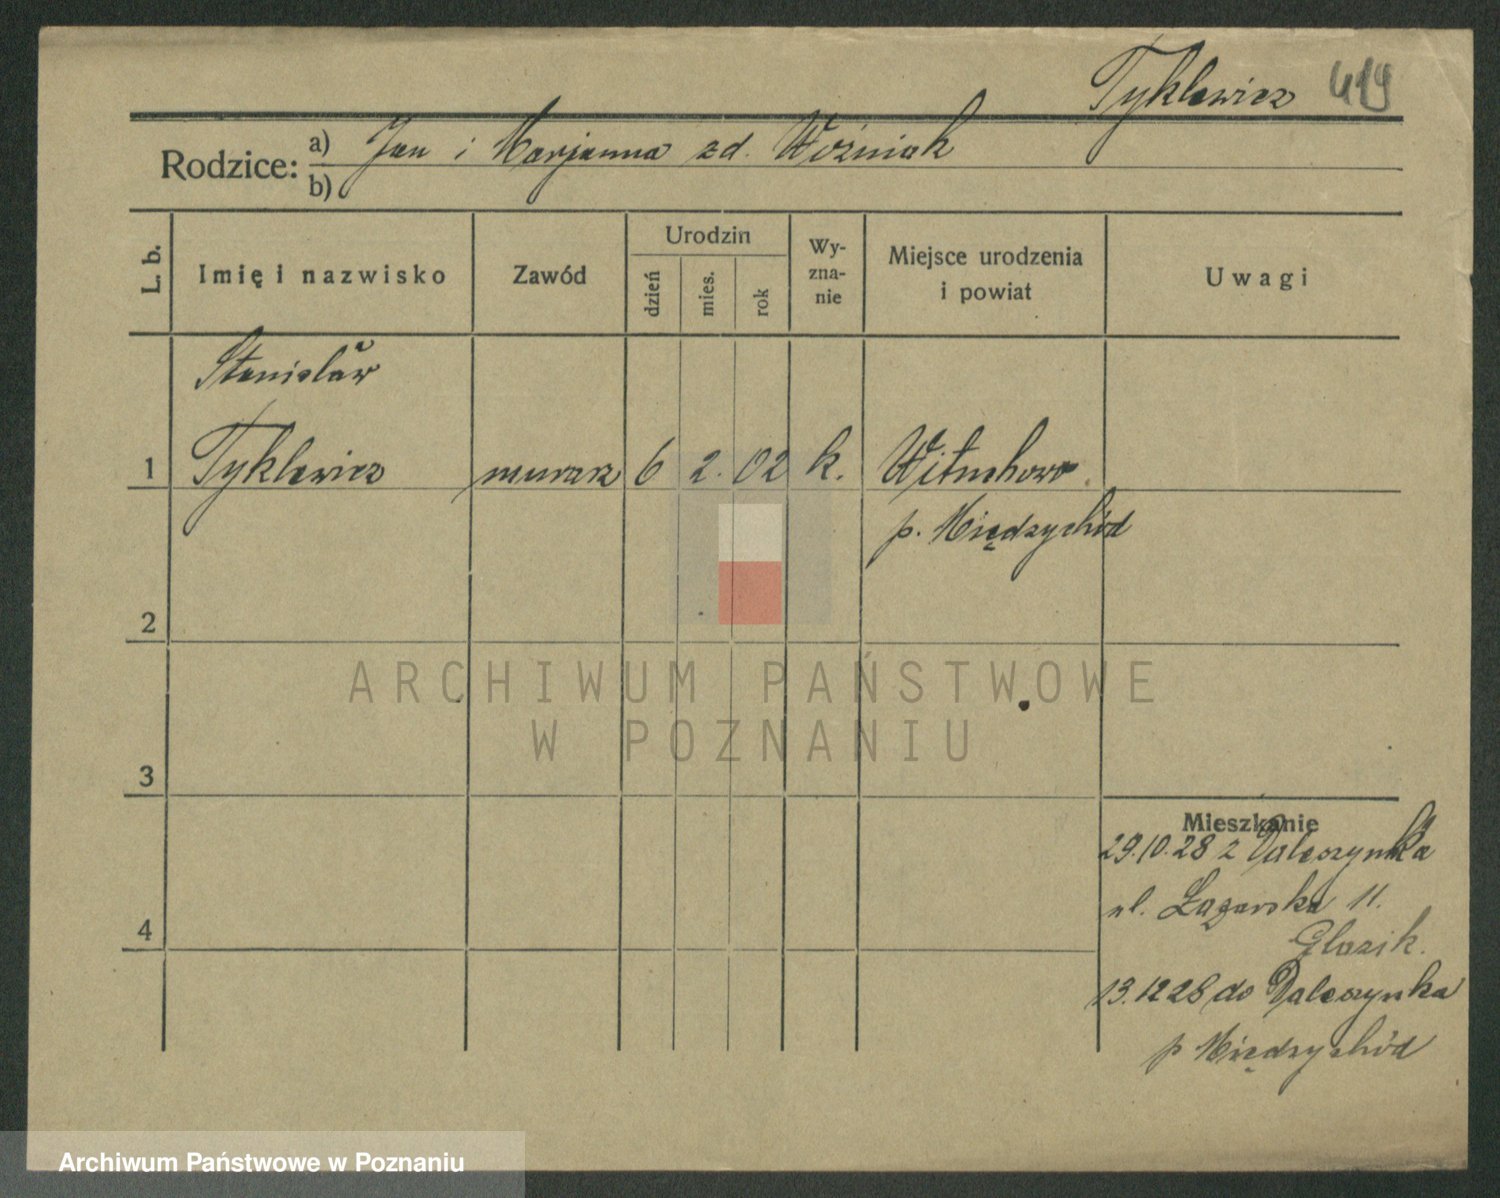 Tyklewicz 419
Rodzice: a) Jan i Marjanna zd. Woźniak
b)
L. b.
Imię i nazwisko
Zawód
Urodzin
dzień
mies.
rok
Wy-
zna-
nie
Miejsce urodzenia
i powiat
Uwagi
Stanisław
1 Tyklewicz murarz 6 2. 02 k. Wituchowo
p. Międzychód
2
ARCHIWUM PAŃSTWOWE
W POZNANIU
3
Mieszkanie
29.10.28 z Daleszynka
ul. Łazarska 11.
Glazik.
4
13.12 28 do Daleszynka
p Międzychód
Archiwum Państwowe w Poznaniu